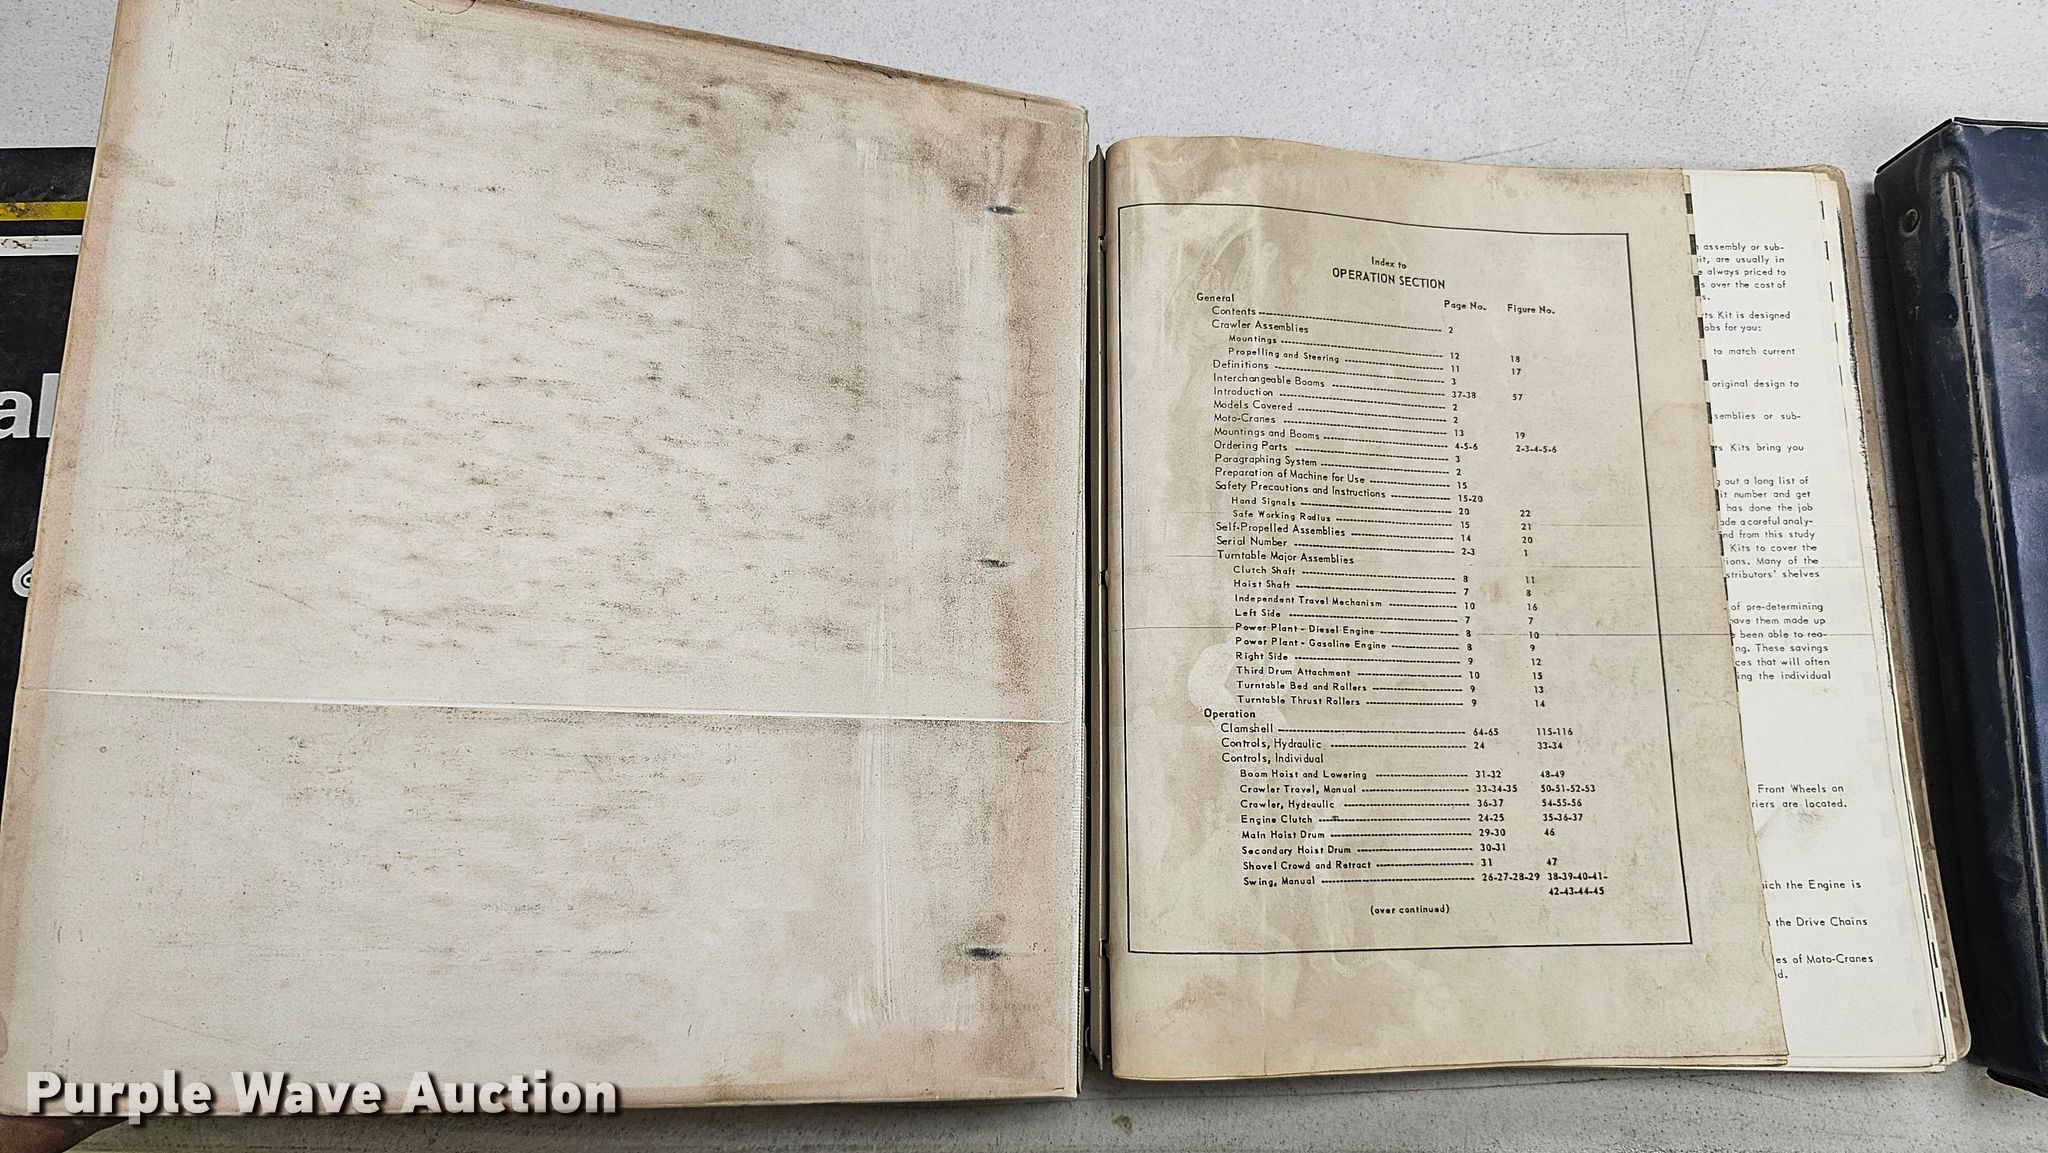 al
Index to
OPERATION SECTION
Page No. Figure No.
General
Contents 2
Crawler Assemblies
Mountings 12 18
Propelling and Steering 11 17
Definitions 3
Interchangeable Booms 37-38 57
Introduction 2
Models Covered 2
Moto-Cranes 13 19
Mountings and Booms 4-5-6 2-3-4-5-6
Ordering Parts 3
Paragraphing System 2
Preparation of Machine for Use 15
Safety Precautions and Instructions 15-20
Hand Signals 20 22
Safe Working Radius 15 21
Self-Propelled Assemblies 14 20
Serial Number 2-3 1
Turntable Major Assemblies
Clutch Shaft 8 11
Hoist Shaft 7 8
Independent Travel Mechanism 10 16
Left Side 7 7
Power Plant - Diesel Engine 8 10
Power Plant - Gasoline Engine 8 9
Right Side 9 12
Third Drum Attachment 10 15
Turntable Bed and Rollers 9 13
Turntable Thrust Rollers 9 14
Operation
Clamshell 64-65 115-116
Controls, Hydraulic 24 33-34
Controls, Individual
Boom Hoist and Lowering 31-32 48-49
Crawler Travel, Manual 33-34-35 50-51-52-53
Crawler, Hydraulic 36-37 54-55-56
Engine Clutch 24-25 35-36-37
Main Hoist Drum 29-30 46
Secondary Hoist Drum 30-31
Shovel Crowd and Retract 31 47
Swing, Manual 26-27-28-29 38-39-40-41-
42-43-44-45
(over continued)
assembly or sub-
it, are usually in
always priced to
s over the cost of
s.
ts Kit is designed
obs for you:
to match current
original design to
semblies or sub-
ts Kits bring you
g out a long list of
it number and get
has done the job
ade a careful analy-
nd from this study
Kits to cover the
ions. Many of the
stributors' shelves
of pre-determining
have them made up
been able to rea-
ng. These savings
ces that will often
ing the individual
Front Wheels on
riers are located.
ich the Engine is
the Drive Chains
es of Moto-Cranes
d.
Purple Wave Auction